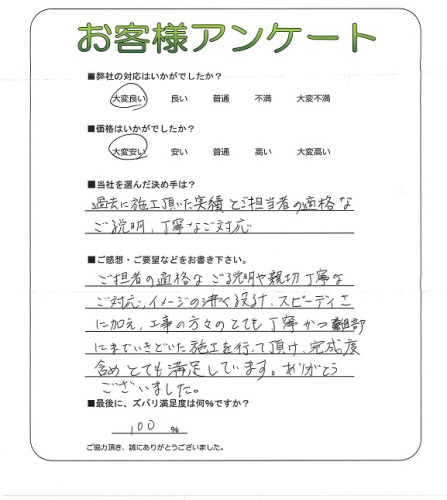 お客様アンケート
■弊社の対応はいかがでしたか？
大変良い 良い 普通 不満 大変不満
■価格はいかがでしたか？
大変安い 安い 普通 高い 大変高い
■当社を選んだ決め手は？
過去に施工頂いた実績とご担当者の適格な
ご説明、丁寧なご対応
■ご感想・ご要望などをお書き下さい。
ご担者の適格なご説明や親切丁寧な
ご対応、イメージの沸く設計、スピーディさ
に加え、工事の方々のとても丁寧かつ細部
にまでいきとどいた施工を行って頂け、完成度
含めとても満足しています。ありがとう
ございました。
■最後に、ズバリ満足度は何％ですか？
100 ％
ご協力頂き、誠にありがとうございました。